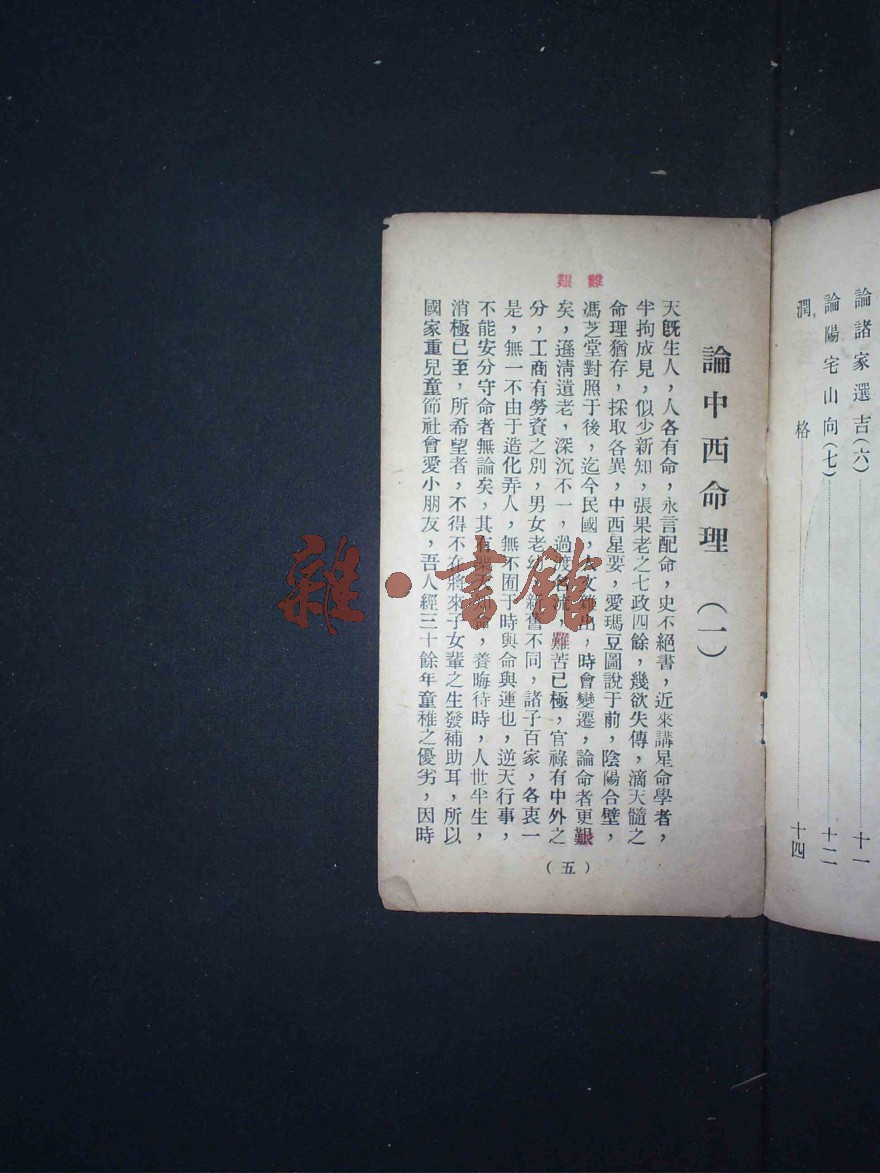 論諸家選吉(六)十一
論陽宅山向(七)十二
潤格十四
論中西命理(一)
天旣生人，人各有命，永言配命，史不絕書，近來講星命學者，
半拘成見，似少新知，張果老之七政四餘，幾欲失傳，滴天髓之
命理猶存，採取各異，中西星要，愛瑪豆圖說于前，陰陽合璧，
馮芝堂對照于後，迄今民國，文雜出，時會變遷，論命者更艱
矣，遜淸遺老，深沉不一，過渡流，難苦已極，官祿有中外之
分，工商有勞資之別，男女老幼，新舊不同，諸子百家，各衷一
是，無一不由于造化弄人，無不囿于時與命與運也，逆天行事，
不能安分守命者無論矣，其有樂天知命，養晦待時，人世半生，
消極已至，所希望者，不得不在將來子女輩之生發補助耳，所以
國家重兒童節社會愛小朋友，吾人經三十餘年童稚之優劣，因時
難
艱
(五)
雜·書館